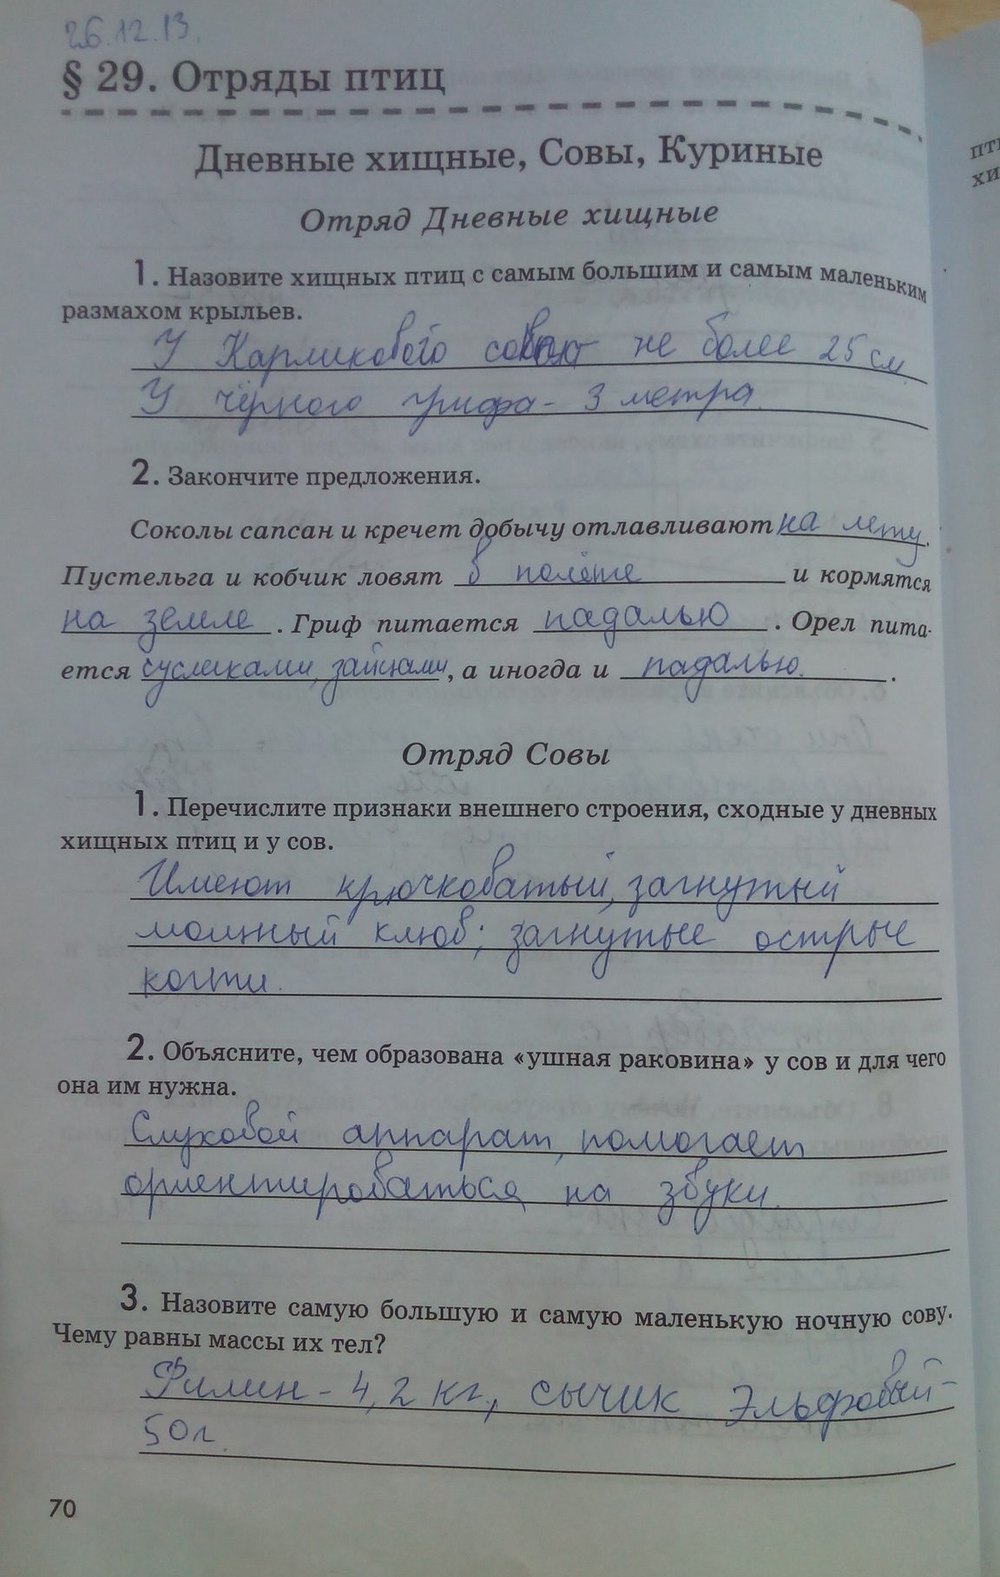 26.12.13.
§ 29. Отряды птиц
Дневные хищные, Совы, Куриные
Отряд Дневные хищные
1. Назовите хищных птиц с самым большим и самым маленьким
размахом крыльев.
У Карликового не более 25 см
У чёрного грифа - 3 метра.
2. Закончите предложения.
Соколы сапсан и кречет добычу отлавливают на лету.
Пустельга и кобчик ловят в полёте и кормятся
на земле. Гриф питается падалью. Орел пита-
ется сусликами, зайцами, а иногда и падалью.
Отряд Совы
1. Перечислите признаки внешнего строения, сходные у дневных
хищных птиц и у сов.
Имеют крючковатый, загнутый
мощный клюв; загнутые острые
когти.
2. Объясните, чем образована «ушная раковина» у сов и для чего
она им нужна.
Слуховой аппарат, помогает
ориентироваться на звуки.
3. Назовите самую большую и самую маленькую ночную сову.
Чему равны массы их тел?
Филин - 4,2 кг, сычик Эльфовый -
50г.
70
пти
хи